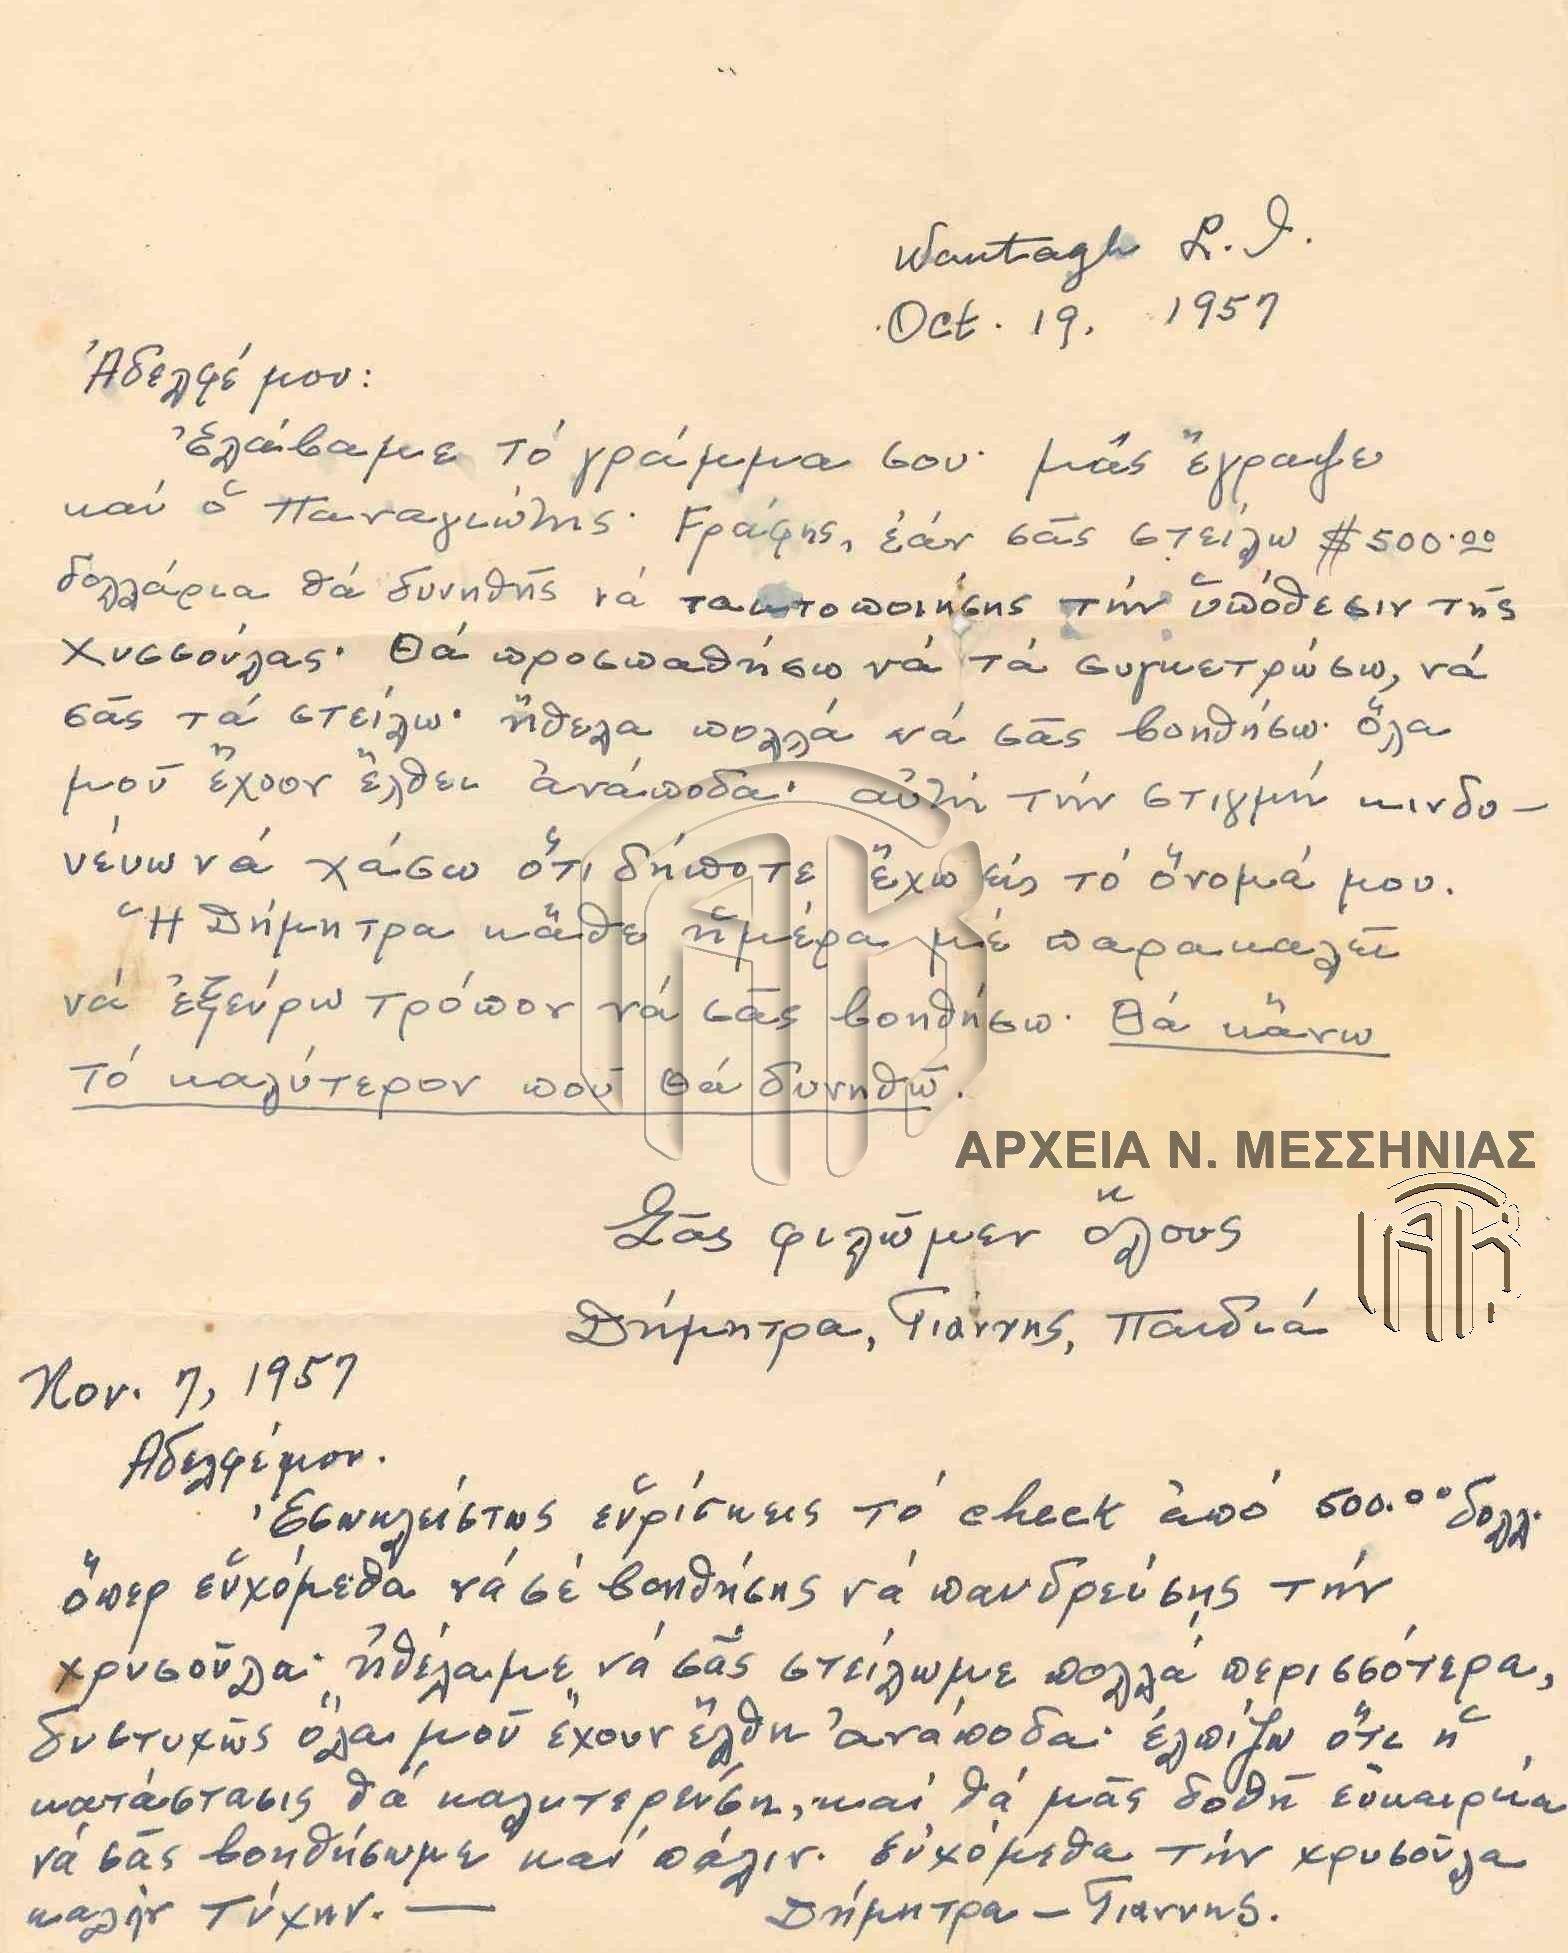 Wantagh L. I.
Oct. 19, 1957
Ἀδελφέ μου:
Ἐλάβαμε τό γράμμα σου· μᾶς ἔγραψε
καί ὁ Παναγιώτης. Γράφης, ἐάν σᾶς στείλω $500.00
δολλάρια θά δυνηθῆς νά τακτοποιήσης τήν ὑπόθεσιν τῆς
Χυσσούλας. Θά προσπαθήσω νά τά συγκετρώσω, νά
σᾶς τά στείλω. ἤθελα πολλά νά σᾶς βοηθήσω. ὅλα
μοῦ ἔχουν ἔλθει ἀνάποδα. αὐτή τήν στιγμή κινδυ-
νέυω νά χάσω ὅτι δήποτε ἔχω εἰς τό ὄνομά μου.
Ἡ Δήμητρα κάθε ἡμέρα μέ παρακαλεῖ
νά ἐξεύρω τρόπον νά σᾶς βοηθήσω. Θά κἄνω
τό καλύτερον ποῦ θά δυνηθῶ.
ΑΡΧΕΙΑ Ν. ΜΕΣΣΗΝΙΑΣ
Σᾶς φιλῶμεν ὅλους
Δήμητρα, Γιάννης, Παιδιά
Nov. 7, 1957
Ἀδελφέ μου.
Ἐσωκλείστως εὑρίσκεις τό check ἀπό 500.00 δολλ.
ὅπερ εὐχόμεθα νά σέ βοηθήσης νά πανδρεύσης τήν
χρυσοῦλα. ἠθέλαμε νά σᾶς στείλωμε πολλά περισσότερα,
δυστυχῶς ὅλα μοῦ ἔχουν ἔλθη ἀνάποδα. ἐλπίζω ὅτι ἡ
κατάστασις θά καλητερεύση, καί θά μᾶς δοθῆ εὐκαιρία
νά σᾶς βοηθήσωμε καί πάλιν. εὐχόμεθα τήν χρυσοῦλα
καλήν τύχην. —
Δήμητρα – Γιαννης.